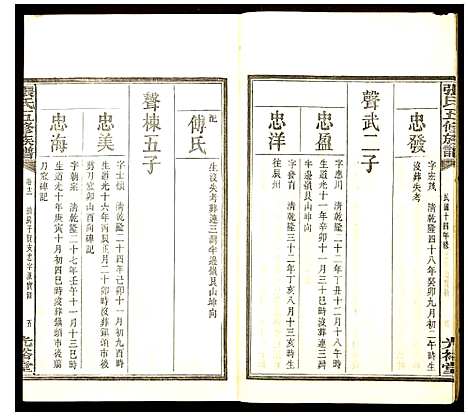 張氏五修族譜
民國十四年修
光裕堂
忠發
字宏茂 清乾隆四十八年癸卯九月初二午時生
沒葬失考
聲武二子
忠盈
字應川 清乾隆二十二年丁丑十二月十八午時
生道光十一年辛卯十一月
牛邊嶺艮山坤向
忠洋
清乾隆三十二年丁亥十一月十一亥時生
往辰州
配
傅氏
生沒失考葬連三灣牛邊嶺艮山坤向
聲棟五子
忠美
字士傾 清乾隆二十四年己卯十一月初九酉時
生道光十六年丙辰正月二十卯時沒葬鎮頭市後
卯刀窊卯山酉向碑記
忠海
字朝宗 清乾隆二十七年壬午十一月十三巳時
生道光十年庚寅十月初四巳時沒葬鎮頭市後廟
刀窊碑記
張氏五修族譜
卷十一
五
光裕堂